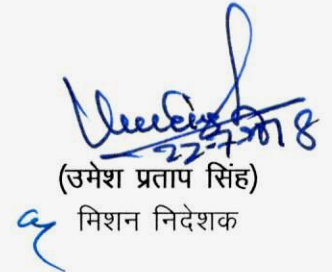 22-7-2018
(उमेश प्रताप सिंह)
मिशन निदेशक